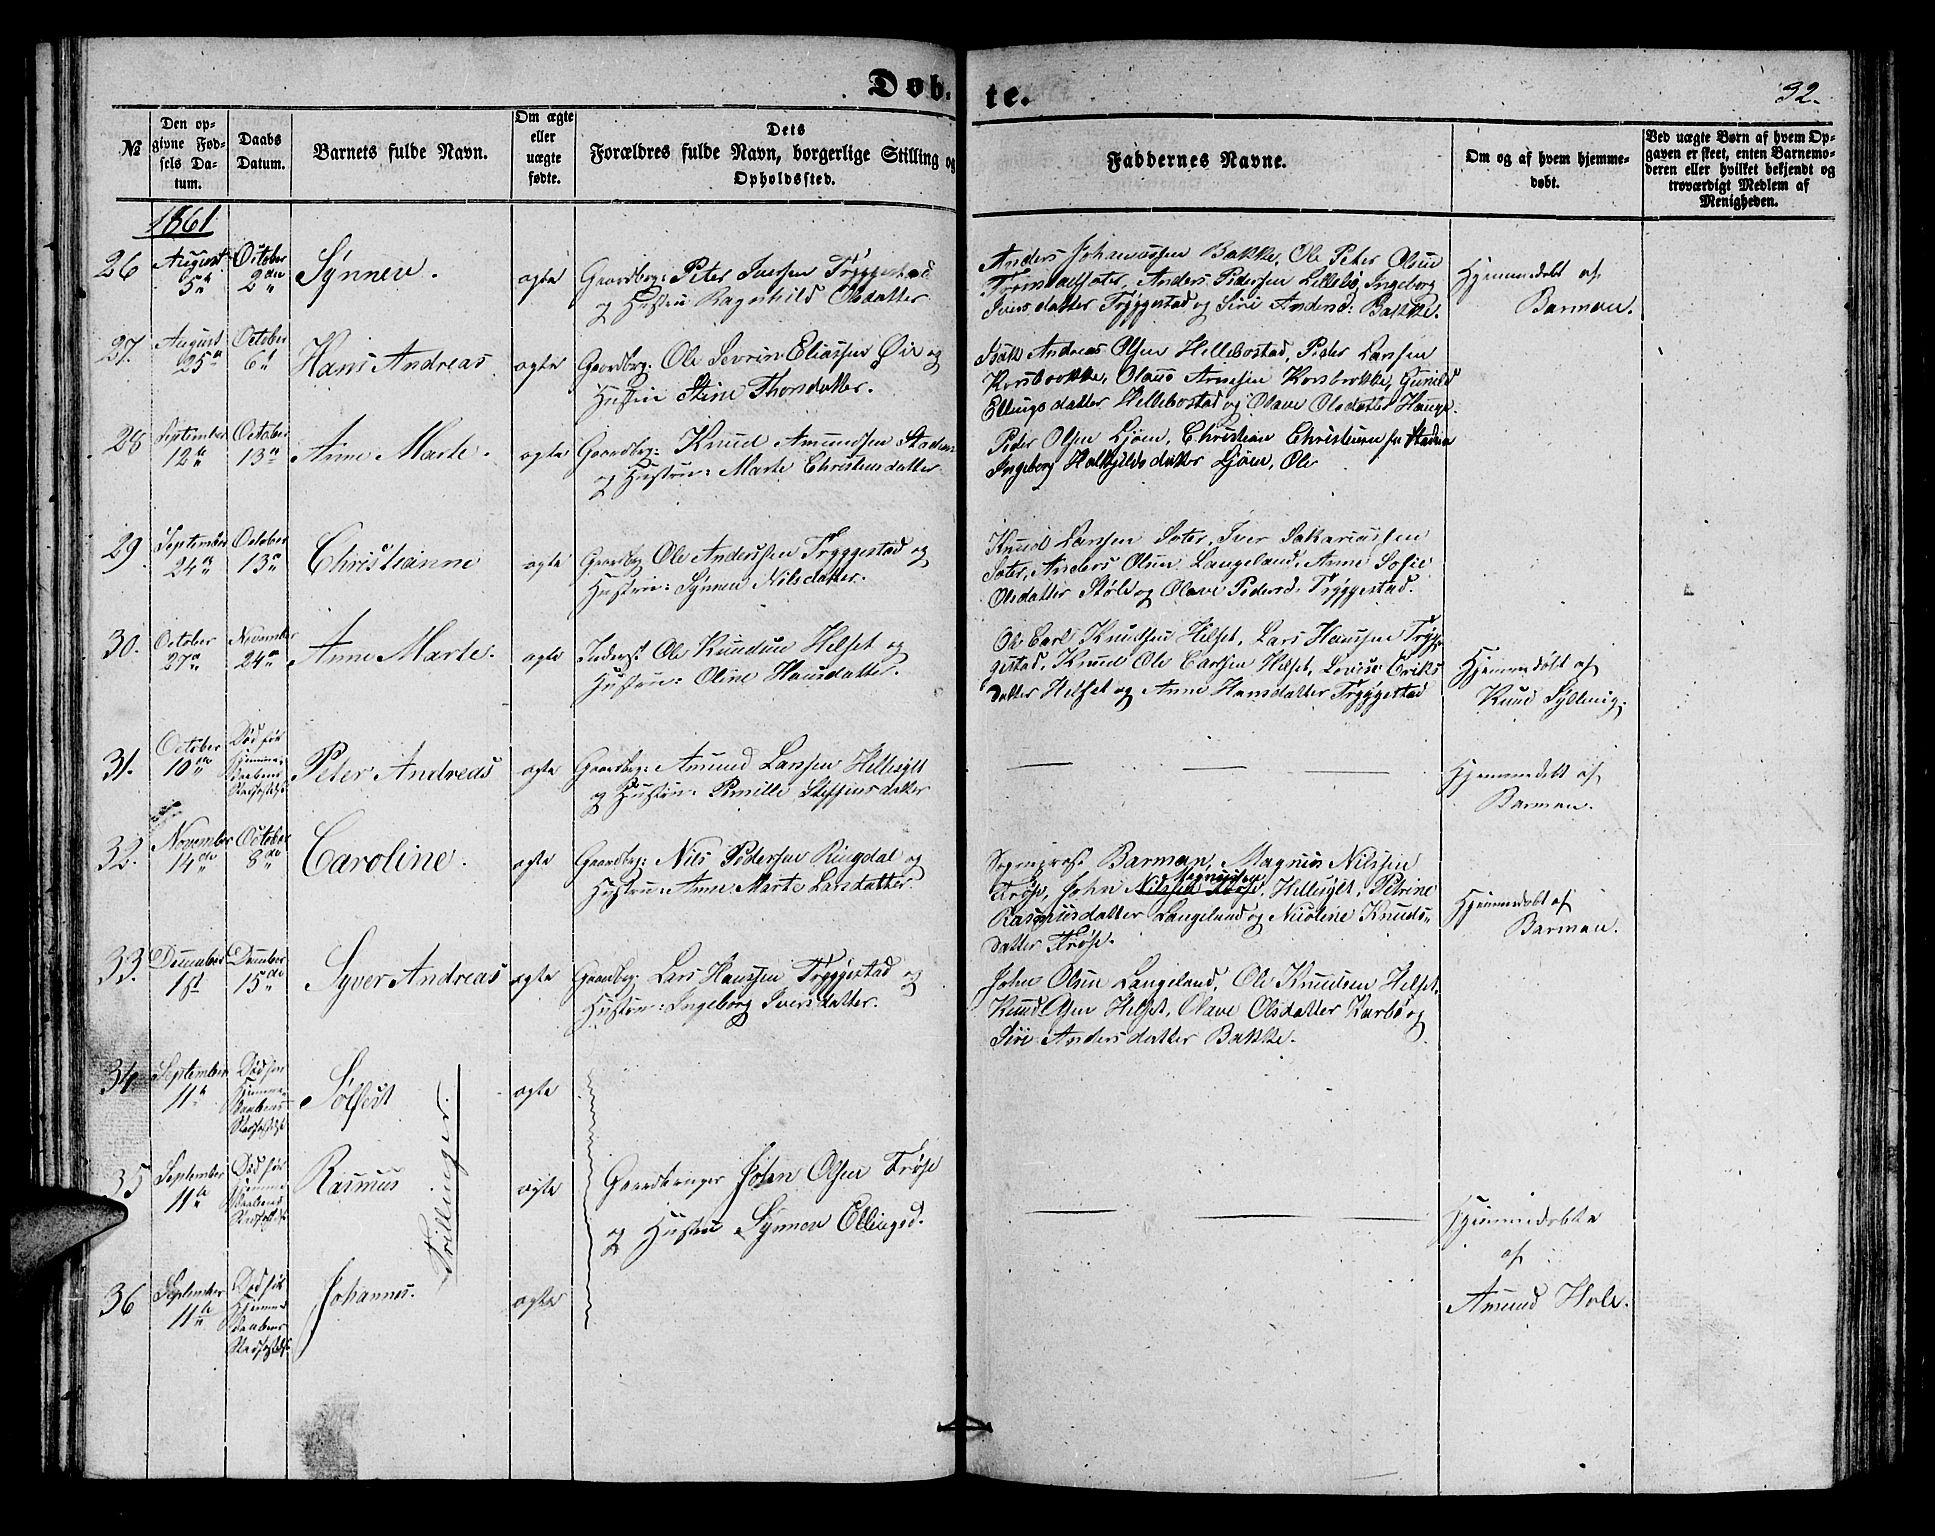 Døb-
te.
32.
№
Den op-
givne Fød-
sels Da-
tum.
Daabs
Datum.
Barnets fulde Navn.
Om ægte
eller
uægte
fødte.
Dets
Forældres fulde Navn, borgerlige Stilling og
Opholdssted.
Faddernes Navne.
Om og af hvem hjemme-
døbt.
Ved uægte Børn af hvem Op-
gaven er skeet, enten Barnemo-
deren eller hvilket bekjendt og
troværdigt Medlem af
Menigheden.
1861
26
August
5te
October
2den
Synneve.
ægte
Gaardbg: Peter Iversen Tryggestad
og Hustru Ragnhild Olsdatter
Anders Johannessen Bakke, Ole Peter Olsen
Anders Pedersen Lillebø, Ingeborg
Iversdatter Tryggestad og Siri Andersd: Bakke.
Hjemmedøbt af
Barman.
27.
August
25
October
6t
Hans Andreas
ægte
Gaardbg: Ole Sevrin Eliassen Øie og
Hustru Stine Thorsdatter.
Andreas Olsen Hellebostad, Peder Larsen
Korsbrække, Olaus Arnesen Korsbrække, Gunild
Ellingsdatter Hellebostad og Olave Olsdatter Hauge.
28
September
12te
October
13
Anne Marte.
ægte
Gaardbg: Knud Amundsen Staden
og Hustru: Marte Christensdatter
Peder Olsen Ljøen, Christian Christensen Staden
Ingeborg Halkjeldsdatter Ljøen, Ole
29
September
24
October
13
Christianne
ægte
Gaardbg Ole Anderssen Tryggestad og
Hustru: Synneve Nilsdatter.
Knud Larssen Sæter, Iver Sakariassen
Sæter, Anders Olsen Langeland, Anne Sofie
Olsdatter Støle og Olave Pedersd: Tryggestad.
30.
October
27
November
24
Anne Marte.
ægte
Inderst Ole Knudsen Helset og
Hustru: Oline Hansdatter.
Ole Carl Knudsen Helset, Lars Hanssen Tryg-
gestad, Knud Ole Larssen Helset, Lovise Eriks
datter Helset og Anne Hansdatter Tryggestad
Hjemmedøbt af
Knud Sylling.
31.
October
10
Død før
Hjemme-
daabens
Stadfæstelse
Peter Andreas
ægte
Gaardbg: Amund Larssen Hellesylt
og Hustru: Pernille Steffensdatter
Hjemmedøbt af
Barman.
32.
November
14de
October
8de
Caroline.
ægte
Gaardbg: Nils Pedersen Ringdal og
Hustru: Anne Marte Larsdatter.
Sogneprest Barman, Magnus Nilssen
Magnussen
Frøse, John Nilssen Frøse, Hellesylt, Petrine
Rasmusdatter Langeland og Nicoline Knuds-
datter Frøse.
Hjemmedøbt af
Barman.
33.
December
1st
December
15de
Syver Andreas
ægte
Gaardbg: Lars Hanssen Tryggestad og
Hustru: Ingeborg Iversdatter.
John Olsen Langeland, Ole Knudsen Helset,
Knud Olsen Helset, Olave Olsdatter Karbø og
Siri Andersdatter Bakke.
34
September
11te
Død før
Hjemme-
daabens
Stadfæstelse
Sølfest
ægte
35
September
11te
Død før
Hjemme
daabens
Stadfæstelse
Rasmus
Trillinger.
ægte
Gaardbruger John Olsen Frøse
og Hustru Synnev Ellingsd.
Hjemmedøbte
af
Amund Hole.
36
September
11te
Død før
Hjemme
daabens
Stadfæstelse
Johannes.
ægte